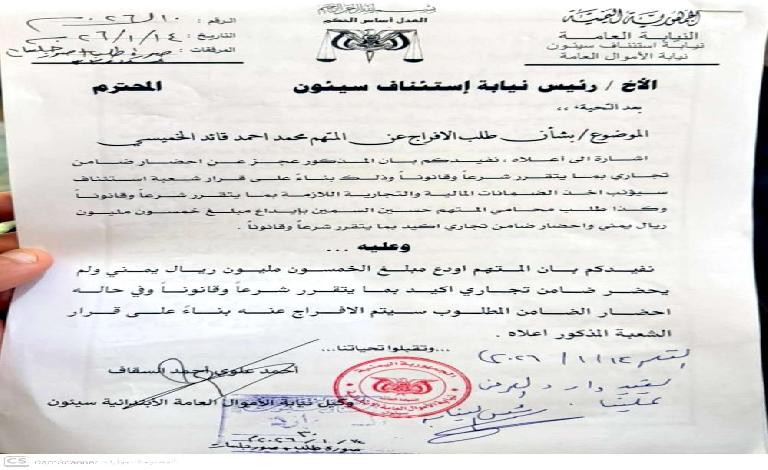 الجمهورية اليمنية
النيابة العامة
نيابة استئناف سيئون
نيابة الأموال العامة
العدل أساس الحكم
الرقم :
التاريخ : ٢٦/١/١٤
المرفقات : صورة طلب
الأخ / رئيس نيابة إستئناف سيئون المحترم
بعد التحية، ،،
الموضوع/ بشأن طلب الافراج عن المتهم محمد احمد قائد الخميسي
اشارة الى اعلاه ، نفيدكم بان المذكور عجز عن احضار ضامن
تجاري بما يتقرر شرعاً وقانوناً وذلك بناءً على قرار شعبة استئناف
سيؤنب اخذ الضمانات المالية والتجارية اللازمة بما يتقرر شرعاً وقانوناً
وكذا طلب محامي المتهم حسين السمين بإيداع مبلغ خمسون مليون
ريال يمني واحضار ضامن تجاري اكيد بما يتقرر شرعاً وقانوناً .
وعليه ...
نفيدكم بان المتهم اودع مبلغ الخمسون مليون ريال يمني ولم
يحضر ضامن تجاري اكيد بما يتقرر شرعاً وقانوناً وفي حاله
احضار الضامن المطلوب سيتم الافراج عنه بناءً على قرار
الشعبة المذكور اعلاه .
...وتقبلوا تحياتنا...
أحمد علوي أحمد السقاف
وكيل نيابة الأموال العامة الأبتدائية سيئون
الجمهورية اليمنية